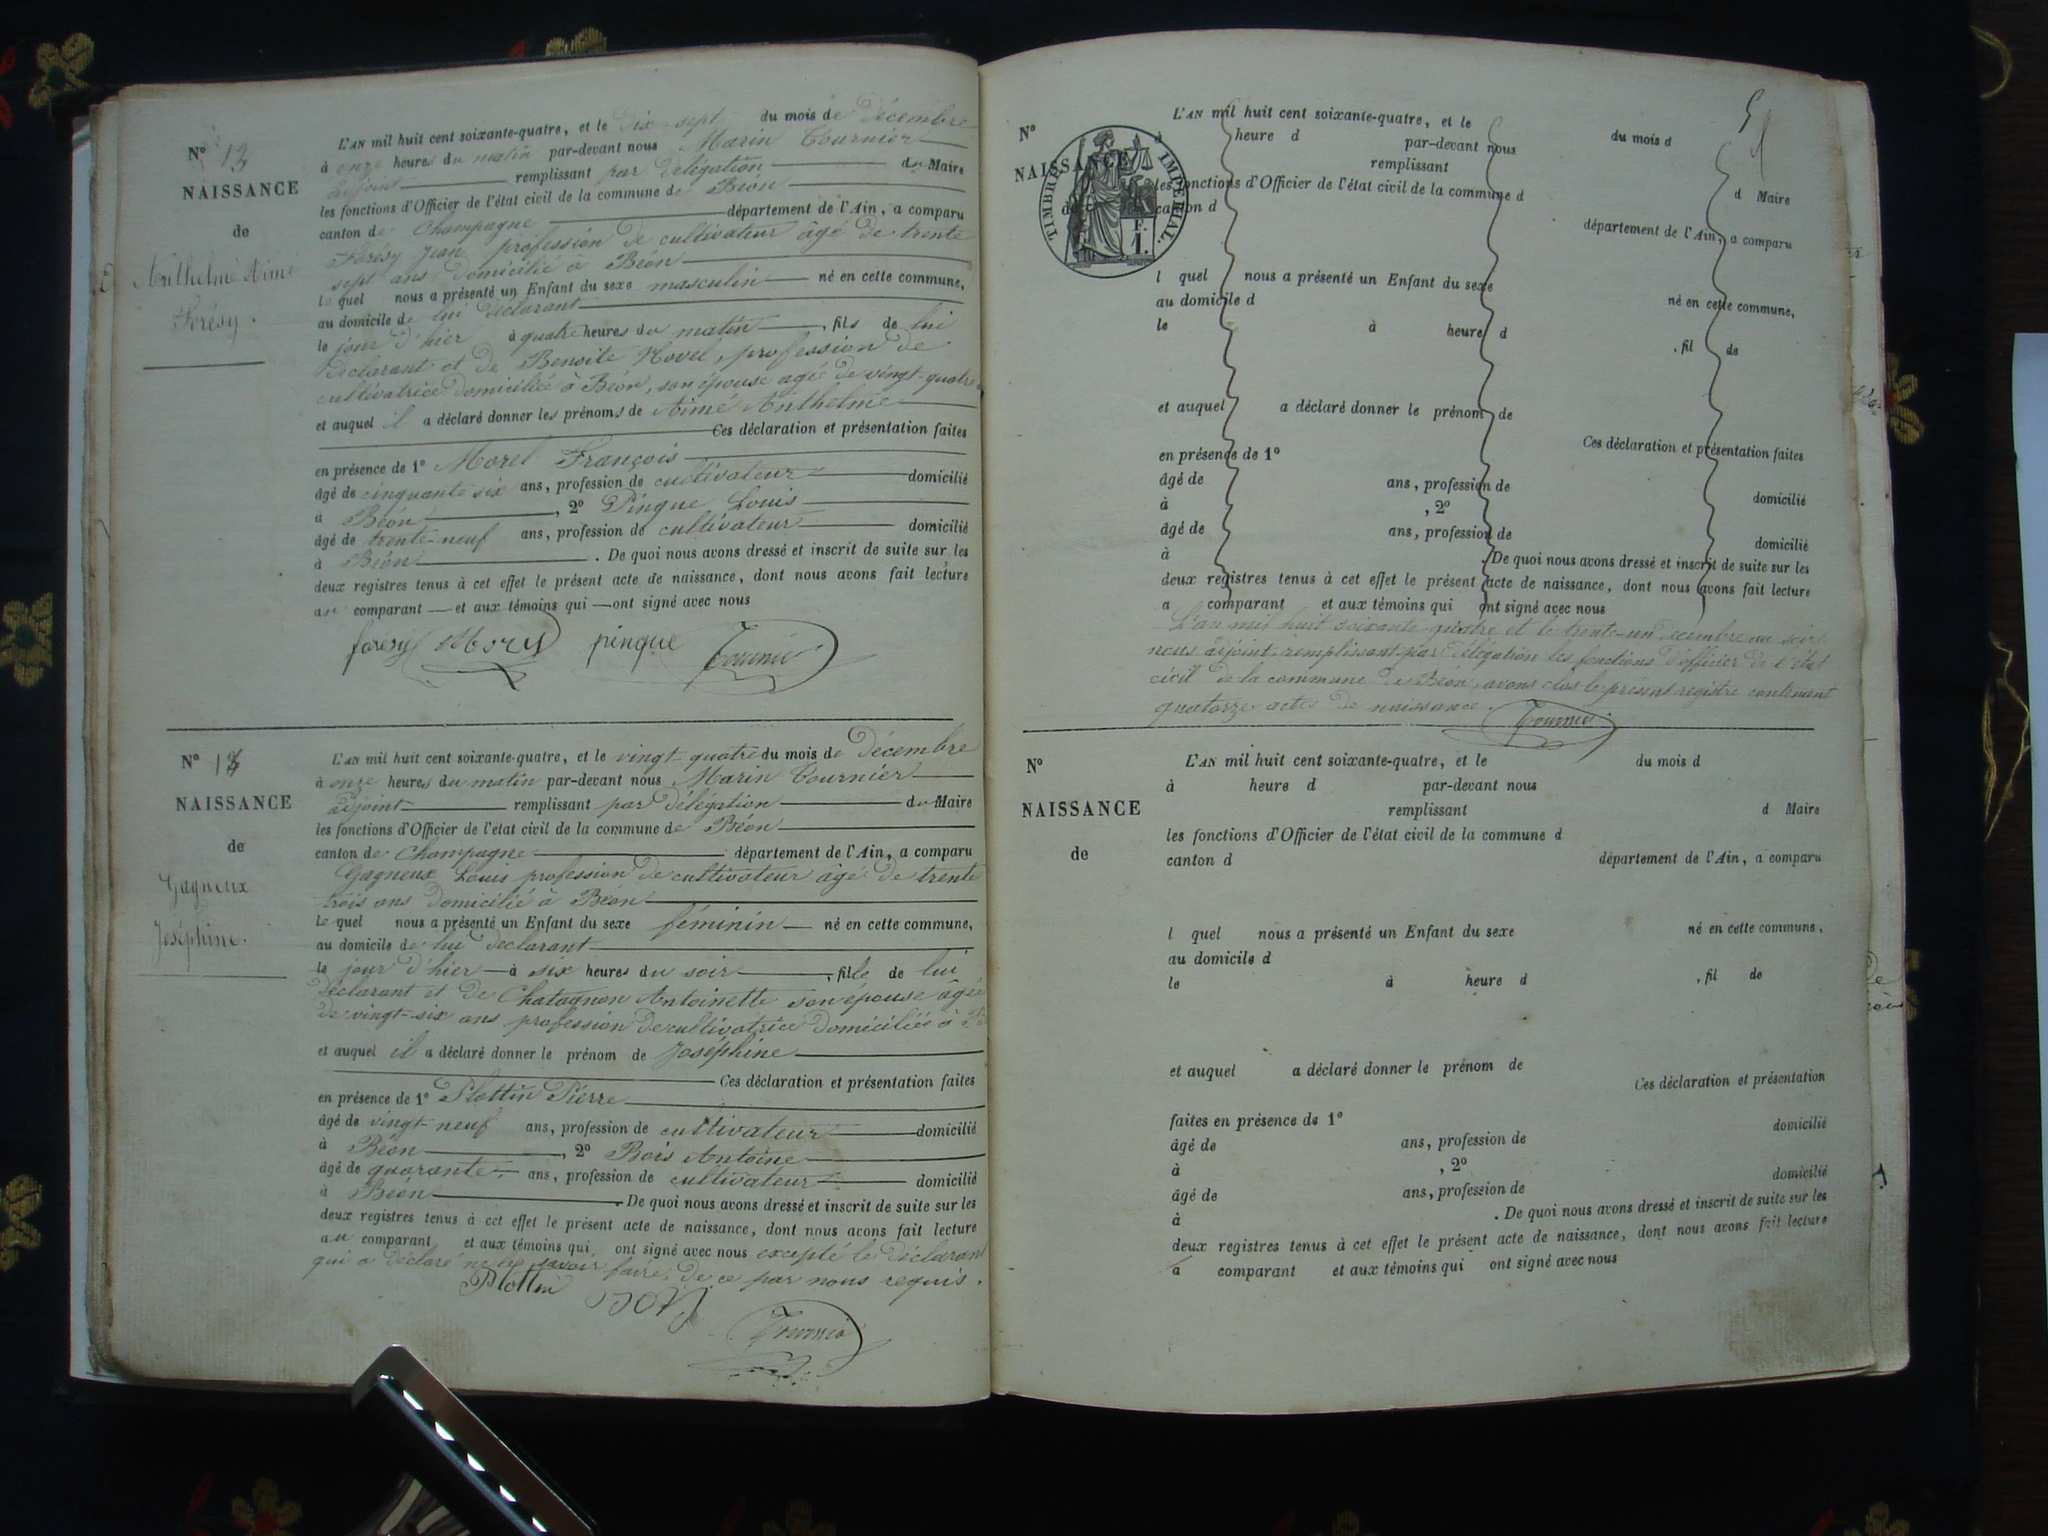 N° 13
NAISSANCE
de
Anthelme Aimé
Forésy.
L'AN mil huit cent soixante-quatre, et le dix-sept du mois de décembre
à onze heures du matin par-devant nous Marin Tournier
adjoint remplissant par délégation du Maire
les fonctions d'Officier de l'état civil de la commune de Béon
canton de Champagne département de l'Ain, a comparu
Forésy Jean profession de cultivateur âgé de trente
sept ans domicilié à Béon
lequel nous a présenté un Enfant du sexe masculin né en cette commune,
au domicile de lui déclarant
le jour d'hier à quatre heures du matin, fils de lui
déclarant et de Benoite profession de
cultivatrice domiciliée à Béon, son épouse agée de vingt-quatre
et auquel il a déclaré donner les prénoms de Aimé Anthelme
Ces déclaration et présentation faites
en présence de 1° Morel François
âgé de cinquante six ans, profession de cultivateur domicilié
à Béon, 2° Pingue Louis
âgé de trente-neuf ans, profession de cultivateur domicilié
à Béon. De quoi nous avons dressé et inscrit de suite sur les
deux registres tenus à cet effet le présent acte de naissance, dont nous avons fait lecture
au comparant et aux témoins qui ont signé avec nous
foresy Morel pingue Tournier
N° 14
NAISSANCE
de
Gagneux
Joséphine.
L'AN mil huit cent soixante-quatre, et le vingt-quatre du mois de décembre
à onze heures du matin par-devant nous Marin Tournier
adjoint remplissant par délégation du Maire
les fonctions d'Officier de l'état civil de la commune de Béon
canton de Champagne département de l'Ain, a comparu
Gagneux Louis profession de cultivateur âgé de trente
trois ans domicilié à Béon
lequel nous a présenté un Enfant du sexe féminin né en cette commune,
au domicile de lui déclarant
le jour d'hier à six heures du soir, fille de lui
déclarant et de Chatagnon Antoinette son épouse âgée
de vingt-six ans profession de cultivatrice domiciliée à
et auquel il a déclaré donner le prénom de Joséphine
Ces déclaration et présentation faites
en présence de 1° Plottin Pierre
âgé de vingt-neuf ans, profession de cultivateur domicilié
à Béon, 2° Bois Antoine
âgé de quarante ans, profession de cultivateur domicilié
à Béon. De quoi nous avons dressé et inscrit de suite sur les
deux registres tenus à cet effet le présent acte de naissance, dont nous avons fait lecture
au comparant et aux témoins qui ont signé avec nous excepté le déclarant
qui a déclaré ne le savoir faire, de ce par nous requis.
Plottin
Tournier
N°
NAISSANCE
TIMBRE IMPERIAL.
F.
1.
L'AN mil huit cent soixante-quatre, et le du mois d
à heure d par-devant nous
remplissant d Maire
les fonctions d'Officier de l'état civil de la commune d
canton d département de l'Ain, a comparu
l quel nous a présenté un Enfant du sexe né en cette commune,
au domicile d
le à heure d , fil de
et auquel a déclaré donner le prénom de
Ces déclaration et présentation faites
en présence de 1°
âgé de ans, profession de domicilié
à , 2°
âgé de ans, profession de domicilié
à . De quoi nous avons dressé et inscrit de suite sur les
deux registres tenus à cet effet le présent acte de naissance, dont nous avons fait lecture
a comparant et aux témoins qui ont signé avec nous
L'an mil huit soixante-quatre et le trente-un décembre au soir
nous adjoint remplissant par délégation les fonctions d'officier de l'état
civil de la commune de Béon, avons clos le présent registre contenant
quatorze actes de naissance. Tournier
N°
NAISSANCE
de
L'AN mil huit cent soixante-quatre, et le du mois d
à heure d par-devant nous
remplissant d Maire
les fonctions d'Officier de l'état civil de la commune d
canton d département de l'Ain, a comparu
l quel nous a présenté un Enfant du sexe né en cette commune,
au domicile d
le à heure d , fil de
et auquel a déclaré donner le prénom de
Ces déclaration et présentation
faites en présence de 1°
âgé de ans, profession de domicilié
à , 2°
âgé de ans, profession de domicilié
à . De quoi nous avons dressé et inscrit de suite sur les
deux registres tenus à cet effet le présent acte de naissance, dont nous avons fait lecture
a comparant et aux témoins qui ont signé avec nous